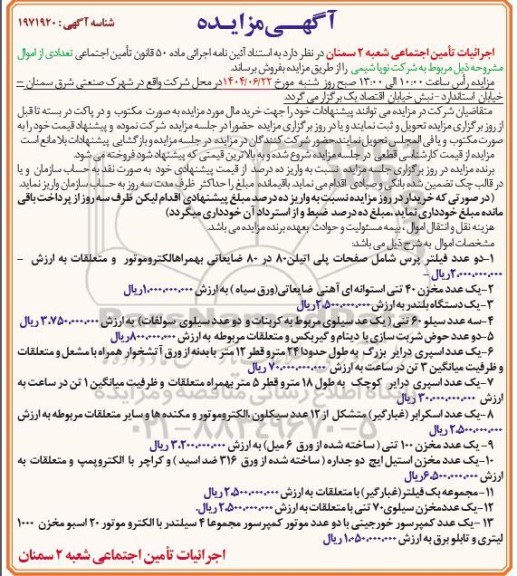 آگهـی مزایـده
شناسه آگهی : ۱۹۷۱۹۲۰
اجرائیات تأمین اجتماعی شعبه ۲ سمنان در نظر دارد به استناد آئین نامه اجرائی ماده ۵۰ قانون تأمین اجتماعی تعدادی از اموال
مشروحه ذیل مربوط به شرکت نوپا شیمی را از طریق مزایده بفروش برساند.
مزایده رأس ساعت ۱۰:۰۰ الی ۱۳:۰۰ صبح روز شنبه مورخ ۱۴۰۴/۰۶/۲۲ در محل شرکت واقع در شهرک صنعتی شرق سمنان –
خیابان استاندارد - نبش خیابان اقتصاد یک برگزار می گردد.
متقاضیان شرکت در مزایده می توانند پیشنهادات خود را جهت خرید مال مورد مزایده به صورت مکتوب و در پاکت در بسته تا قبل
از روز برگزاری مزایده تحویل و ثبت نمایند و یا در روز برگزاری مزایده حضورا در جلسه مزایده شرکت نموده و پیشنهاد قیمت خود را به
صورت مکتوب و یا فی المجلس تحویل نمایند. حضور شرکت کنندگان در مزایده در جلسه مزایده و بازگشایی پیشنهادات بلا مانع است
مزایده از قیمت کارشناسی قطعی در جلسه مزایده شروع شده و به بالاترین قیمتی که پیشنهاد شود فروخته می شود.
برنده مزایده در روز برگزاری جلسه مزایده نسبت به واریز ده درصد از قیمت پیشنهادی خود به صورت نقد به حساب سازمان و یا
در قالب چک تضمین شده بانکی و صیادی اقدام می نماید. باقیمانده مبلغ را حداکثر ظرف مدت سه روز به حساب سازمان واریز نماید.
(در صورتی که خریدار در روز مزایده نسبت به واریز ده درصد مبلغ پیشنهادی اقدام لیکن ظرف سه روز از پرداخت باقی
مانده مبلغ خودداری نماید .مبلغ ده درصد ضبط و از استرداد آن خودداری میگردد)
هزینه نقل و انتقال اموال ، بیمه مسئولیت و حوادث بعهده برنده مزایده می باشد.
مشخصات اموال به شرح ذیل می باشد:
۱-دو عدد فیلتر پرس شامل صفحات پلی اتیلن ۸۰ در ۸۰ ضایعاتی بهمراه الکتروموتور و متعلقات به ارزش –
۲.۰۰۰.۰۰۰.۰۰۰ ریال –
۲-یک عدد مخزن ۴۰ تنی استوانه ای آهنی ضایعاتی(ورق سیاه ) به ارزش ۱.۰۰۰.۰۰۰.۰۰۰ ریال
۳-یک دستگاه بلندر به ارزش ۲.۵۰۰.۰۰۰.۰۰۰ ریال
۴-سه عدد سیلو ۶۰ تنی (یک عد سیلوی مربوط به کربنات و دو عدد سیلوی سولفات) به ارزش ۳.۷۵۰.۰۰۰.۰۰۰ ریال
۵-دو عدد حوض شربت سازی با دینام و گیربکس و متعلقات مربوطه به ارزش ۸۰۰.۰۰۰.۰۰۰ ریال
۶-یک عدد اسپری درایر بزرگ به طول حدودا ۲۴ متر و قطر ۱۲ متر با بدنه از ورق آ تشخوار همراه با مشعل و متعلقات
و ظرفیت میانگین ۳ تن در ساعت به ارزش ۷۰.۰۰۰.۰۰۰.۰۰۰ ریال
۷-یک عدد اسپری درایر کوچک به طول ۱۸ متر و قطر ۵ متر بهمراه متعلقات و ظرفیت میانگین ۱ تن در ساعت به
ارزش ۳۰.۰۰۰.۰۰۰.۰۰۰ ریال
۸-یک عدد اسکرابر (غبارگیر) متشکل از ۱۲ عدد سیکلون ،الکتروموتور و مکنده ها و سایر متعلقات مربوطه به ارزش
۲.۵۰۰.۰۰۰.۰۰۰ ریال
۹-یک عدد مخزن ۱۰۰ تنی ( ساخته شده از ورق ۶ میل) به ارزش ۳.۲۰۰.۰۰۰.۰۰۰ ریال
۱۰-یک عدد مخزن استیل ایچ دو جداره ( ساخته شده از ورق ۳۱۶ ضد اسید ) و کراچر با الکتروپمپ و متعلقات به
ارزش ۶.۵۰۰.۰۰۰.۰۰۰ ریال
۱۱-مجموعه بک فیلتر(غبارگیر) با متعلقات به ارزش ۲.۵۰۰.۰۰۰.۰۰۰ ریال
۱۲-یک عدد مخزن سیلوی ۷۰ تنی با متعلقات به ارزش ۲.۵۰۰.۰۰۰.۰۰۰ ریال.
۱۳ -یک عدد کمپرسور خورجینی با دو عدد موتور کمپرسور مجموعا ۴ سیلندر با الکترو موتور ۲۰ اسبو مخزن ۱۰۰۰
لیتری و تابلو برق به ارزش ۱.۰۵۰.۰۰۰.۰۰۰ ریال
اجرائیات تأمین اجتماعی شعبه ۲ سمنان
ParsNamadData
۰۲۱-۸۸۳۴۹۶۷۰-۵